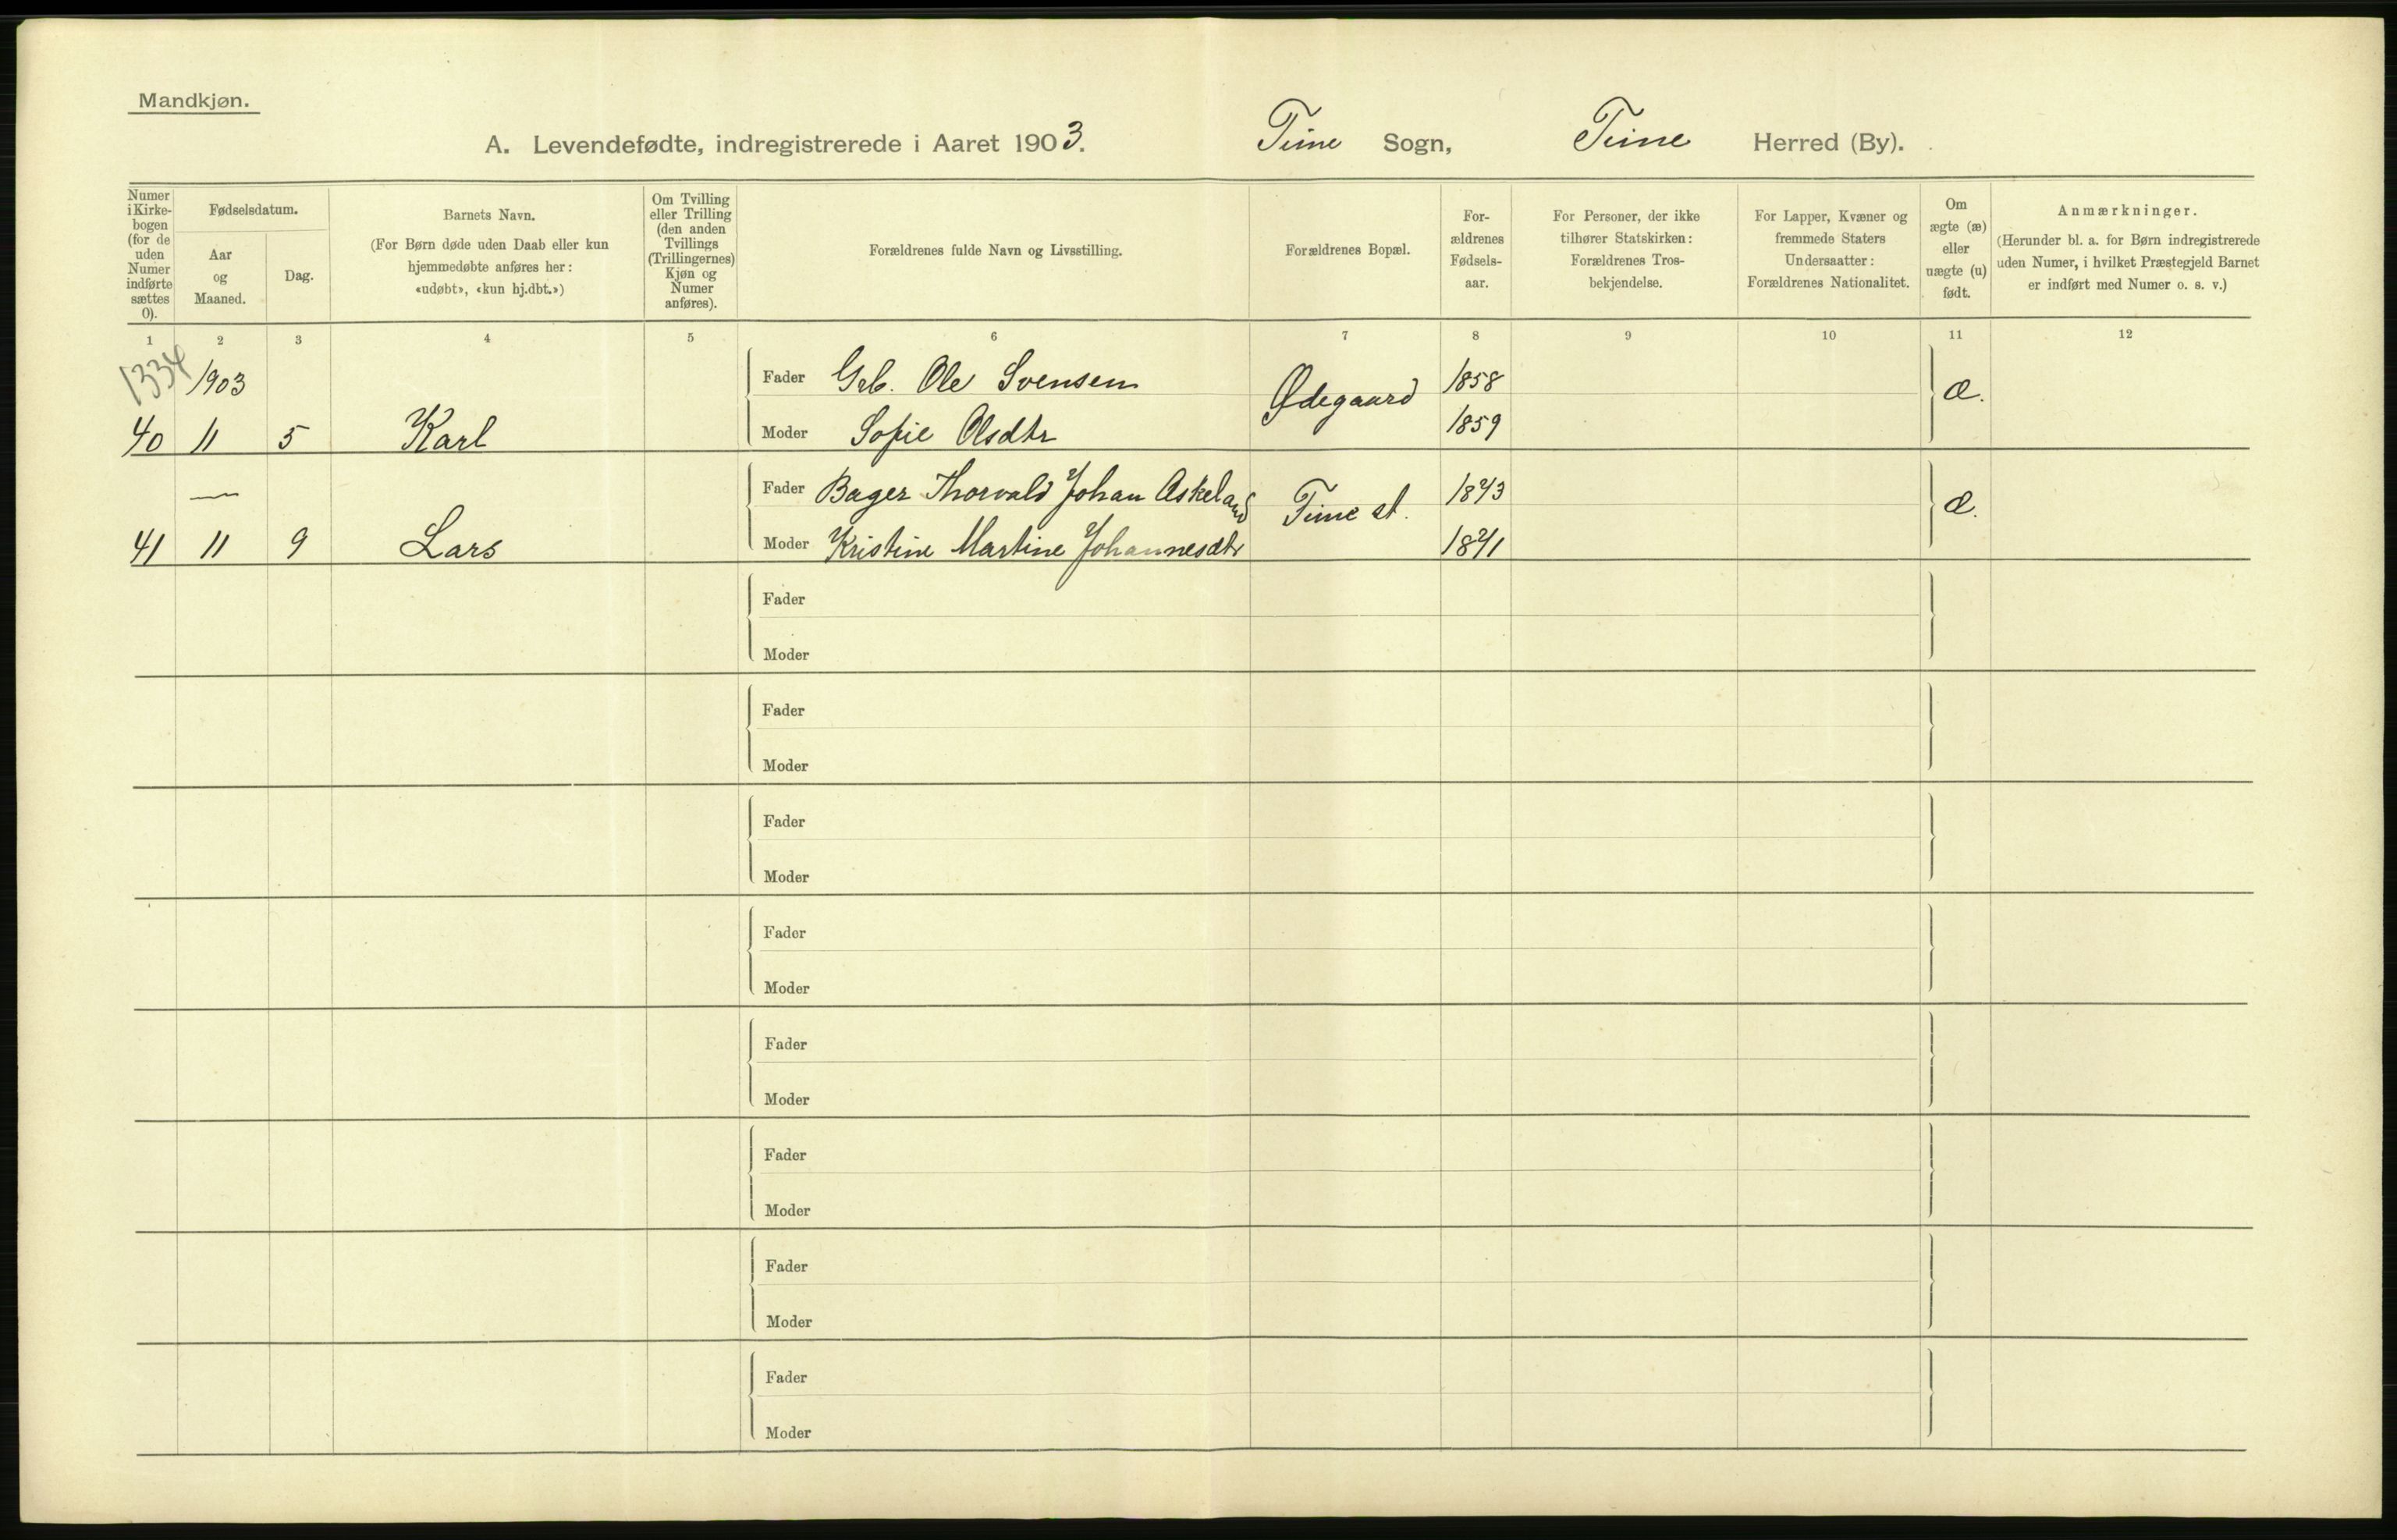 Mandkjøn.
A. Levendefødte, indregistrerede i Aaret 1903. Time Sogn, Time Herred (By).
Numer i Kirkebogen (for de uden Numer indførte sættes 0).
Fødselsdatum.
Aar og Maaned.
Dag.
Barnets Navn.
(For Børn døde uden Daab eller kun
hjemmedøbte anføres her:
«udøbt», «kun hj.dbt.»)
Om Tvilling
eller Trilling
(den anden
Tvillings
(Trillingernes)
Kjøn og
Numer
anføres).
Forældrenes fulde Navn og Livsstilling.
Forældrenes Bopæl.
For-
ældrenes
Fødsels-
aar.
For Personer, der ikke
tilhører Statskirken:
Forældrenes Tros-
bekjendelse.
For Lapper, Kvæner og
fremmede Staters
Undersaatter:
Forældrenes Nationalitet.
Om
ægte (æ)
eller
uægte (u)
født.
Anmærkninger.
(Herunder bl. a. for Børn indregistrerede
uden Numer, i hvilket Præstegjeld Barnet
er indført med Numer o. s. v.)
1 2 3 4 5 6 7 8 9 10 11 12
1334 1903 Fader Grb. Ole Svensen Ødegaard 1858 Æ.
40 11 5 Karl Moder Sofie Olsdtr 1859
— Fader Bager Thorvald Johan Askeland Time st. 1873 Æ.
41 11 9 Lars Moder Kristine Martine Johannesdtr 1871
Fader
Moder
Fader
Moder
Fader
Moder
Fader
Moder
Fader
Moder
Fader
Moder
Fader
Moder
Fader
Moder